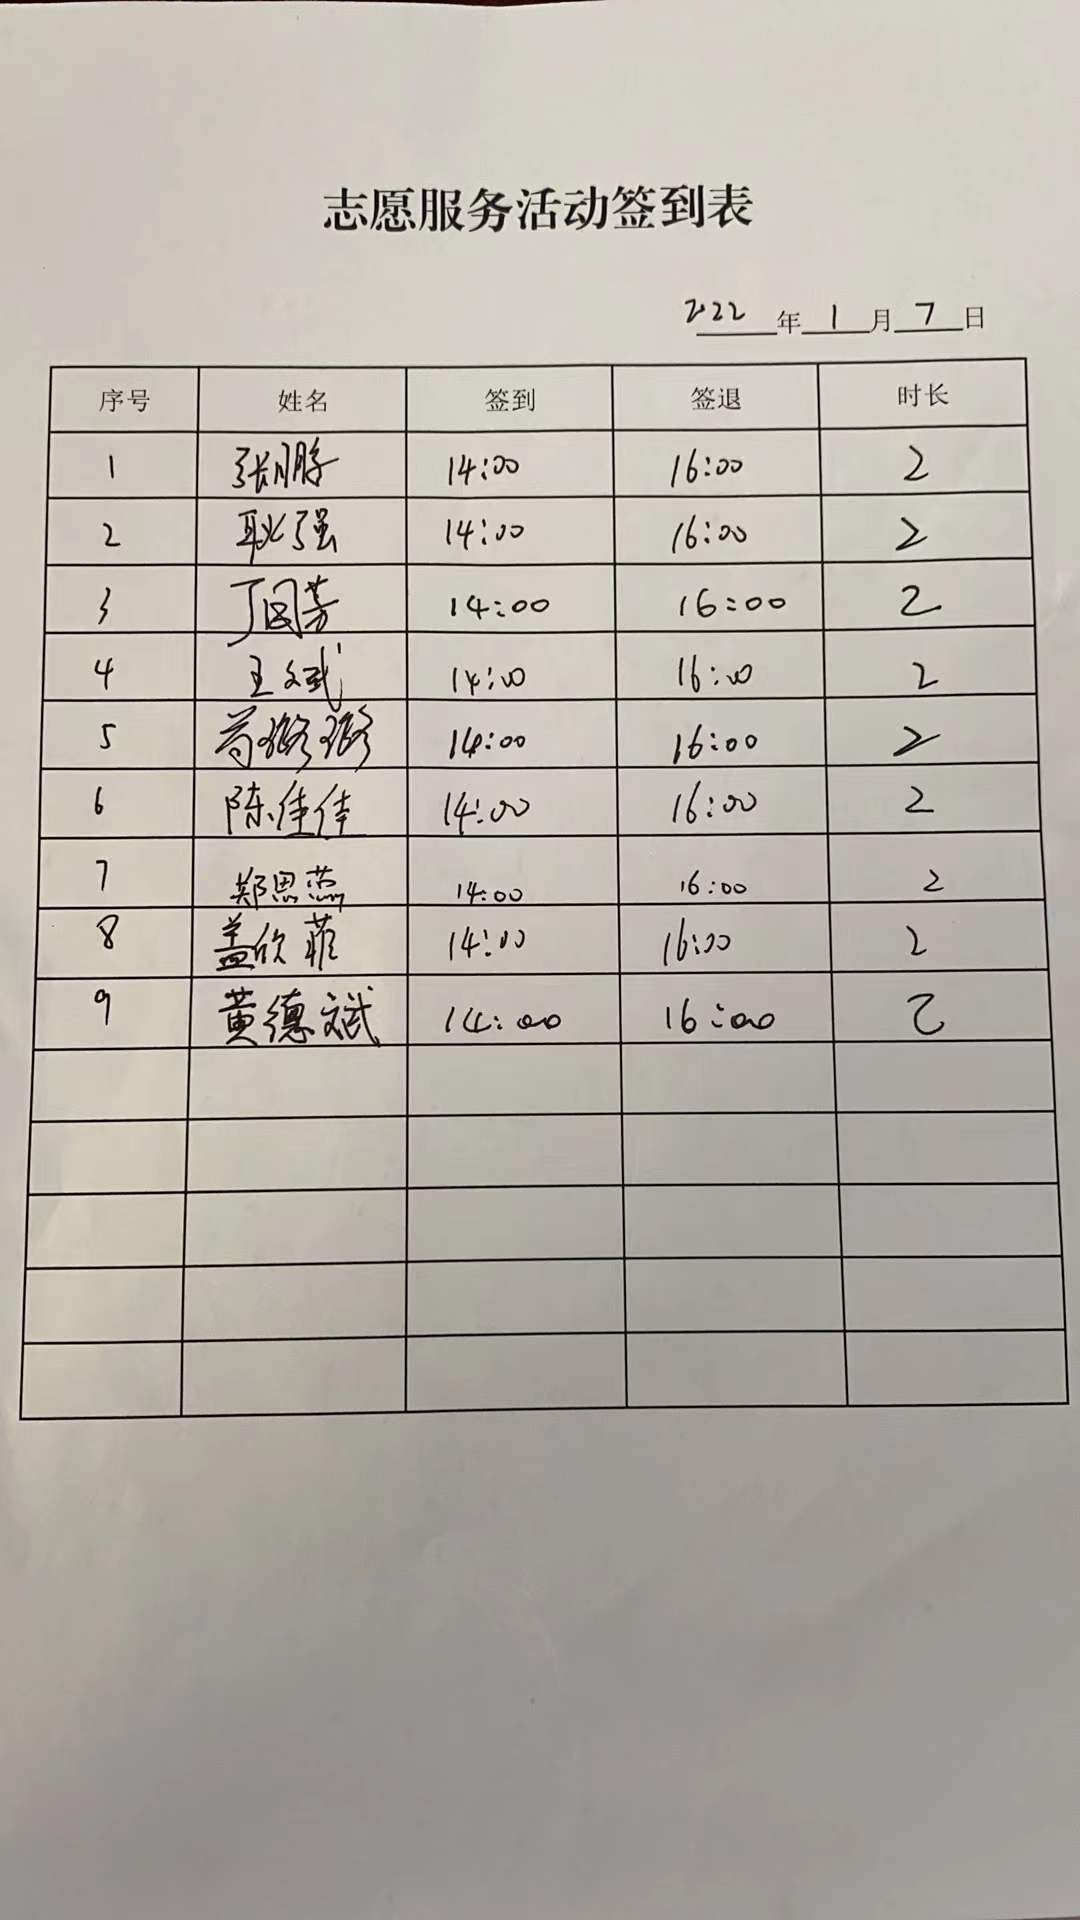 志愿服务活动签到表
2022年1月7日
序号 姓名 签到 签退 时长
1 张鹏 14:00 16:00 2
2 耿强 14:00 16:00 2
3 丁国芳 14:00 16:00 2
4 王文斌 14:00 16:00 2
5 14:00 16:00 2
6 陈佳佳 14:00 16:00 2
7 郑思燕 14:00 16:00 2
8 盖欣菲 14:00 16:00 2
9 黄德斌 14:00 16:00 2